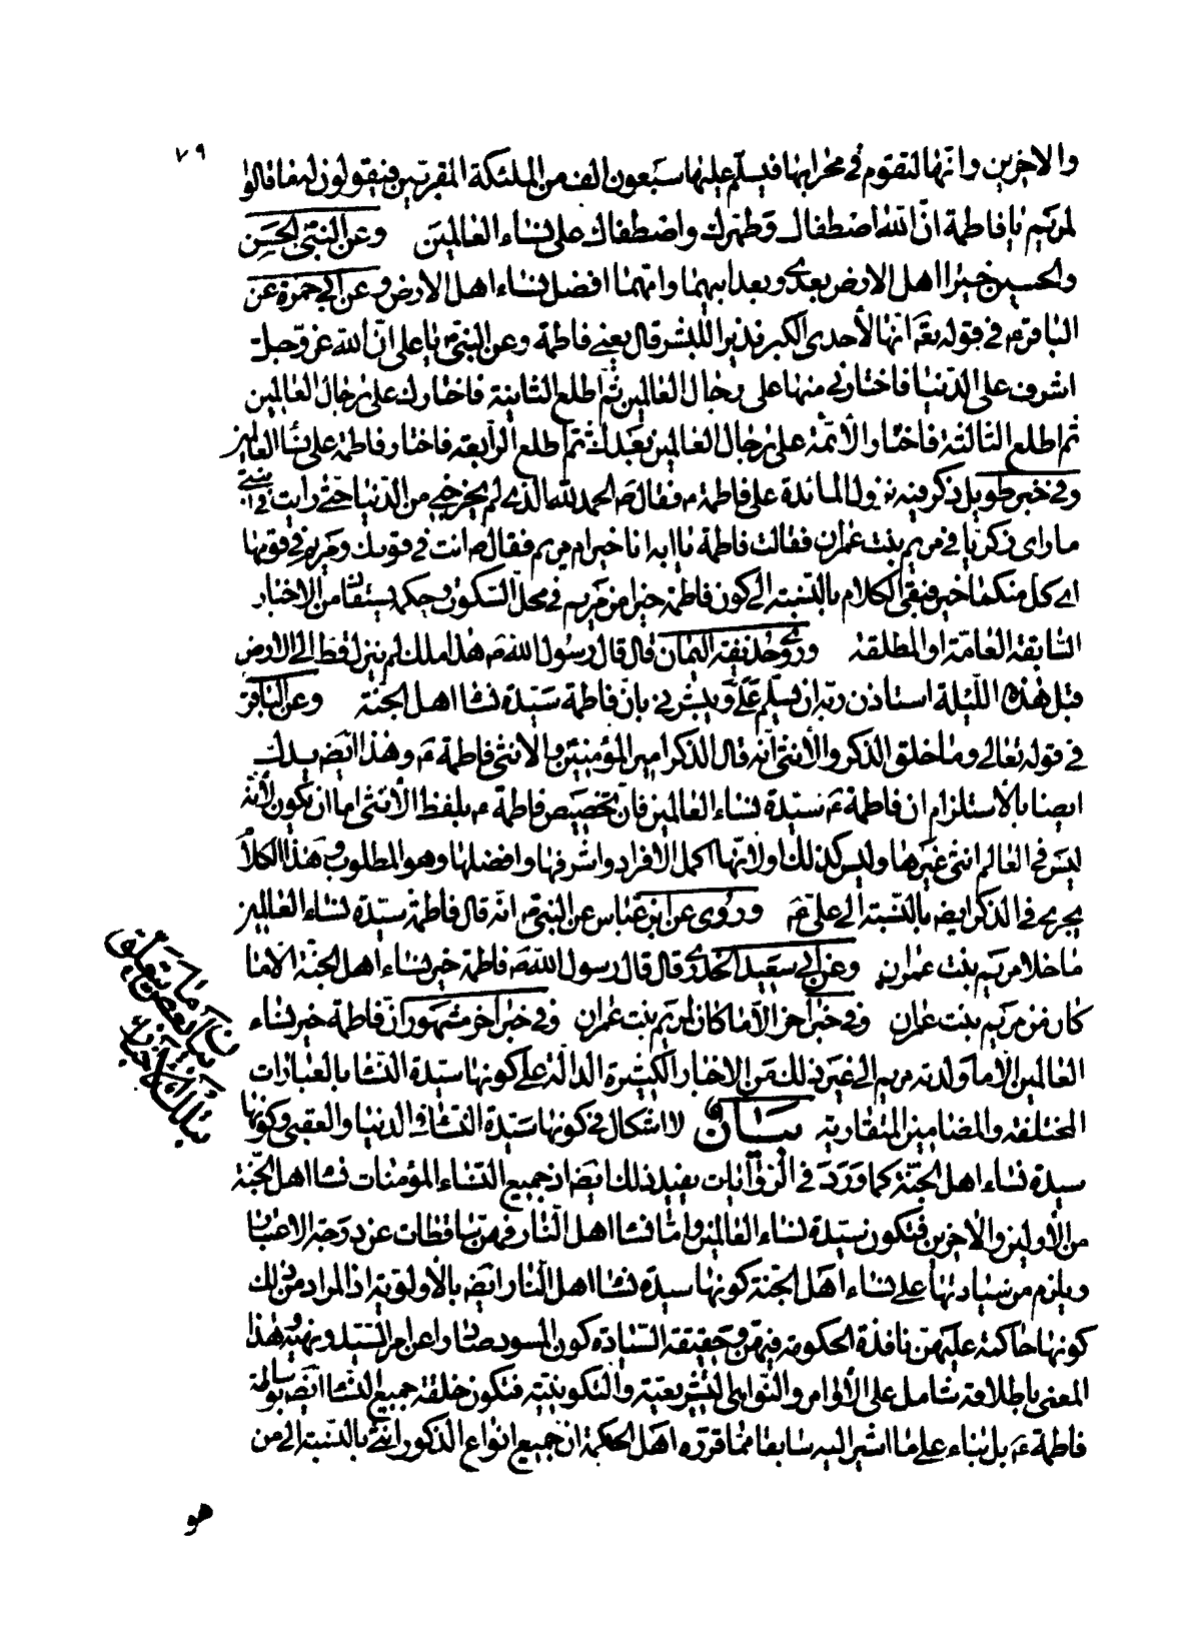 ٧٩
والاخرين وانها لتقوم في محرابها فيسلم عليها سبعون الف من الملئكة المقربين فيقولون لها ما قالوا
لمريم يا فاطمة ان الله اصطفاك وطهرك واصطفاك على نساء العالمين وعن النبي الحسن
والحسين خير اهل الارض بعدي وبعد ابيهما وامهما افضل نساء اهل الارض وعن ابي حمزة عن
الباقر ع في قوله تعه انها لأحدى الكبر نذيرا للبشر قال يعني فاطمة وعن النبي ص يا علي ان الله عز وجل
اشرف على الدنيا فاختارني منها على رجال العالمين ثم اطلع الثانية فاختارك على رجال العالمين
ثم اطلع الثالثة فاختار الأئمة على رجال العالمين بعدك ثم اطلع الرابعة فاختار فاطمة على نساء العالمين
وفي خبر طويل ذكر فيه نزول المائدة على فاطمة ع فقال ص الحمد لله الذي لم يخرجني من الدنيا حتى رايت في ابنتي
ما راى زكريا في مريم بنت عمران فقالت فاطمة يا ابه انا خير ام مريم فقال ص انت في قومك ومريم في قومها
اي كل منكما خير فبقي الكلام بالنسبة الى كون فاطمة خيرا من مريم في محل السكون وحكمه يستفاد من الاخبار
السابقة العامة او المطلقة وروى حذيفة اليمان قال قال رسول الله ص هذا ملك لم ينزل قط الى الارض
قبل هذه الليلة استاذن ربه ان يسلم علي ويبشرني بان فاطمة سيدة نساء اهل الجنة وعن الباقر
في قوله تعالى وما خلق الذكر والأنثى انه قال الذكر امير المؤمنين والانثى فاطمة ع وهذا ايضه يدل
ايضا بالأستلزام ان فاطمة ع سيدة نساء العالمين فان تخصيص فاطمة ع بلفظ الأنثى اما ان يكون لأنه
ليس في العالم انثى غيرها وليس كذلك او لانها اكمل الافراد واشرفها وافضلها وهو المطلوب وهذا الكلام
يجري في الذكر ايضه بالنسبة الى علي ع وروى عن ابن عباس عن النبي ص انه قال فاطمة سيدة نساء العالمين
ما خلا مريم بنت عمران وعن ابي سعيد الخدري قال قال رسول الله ص فاطمة خير نساء اهل الجنة الا ما
كان من مريم بنت عمران وفي خبر اخر الا ما كان لمريم بنت عمران وفي خبر اخر مشهور ان فاطمة خير نساء
العالمين الا ما ولدته مريم الى غير ذلك من الاخبار الكثيرة الدالة على كونها سيدة النساء بالعبارات
المختلفة والمضامين المتقاربة بيان لا اشكال في كونها سيدة النساء في الدنيا والعقبى وكونها
سيدة نساء اهل الجنة كما ورد في الروايات يفيد ذلك ايضه اذ جميع النساء المؤمنات نساء اهل الجنة
من الأولين والأخرين فتكون سيدة نساء العالمين واما نساء اهل النار فهن ساقطات عن درجة الاعتبار
ويلزم من سيادتها على نساء اهل الجنة كونها سيدة نساء اهل النار ايضه بالأولوية اذ المراد من ذلك
كونها حاكمة عليهن نافذة الحكومة فيهن وحقيقة السيادة كون المسود صادرا عن امر السيد ونهيه وهذا
المعنى باطلاقه شامل على الأوامر والنواهي التشريعية والتكوينية فتكون خلقة جميع النساء ايضه بواسطة
فاطمة ع بل بناء على ما اشير اليه سابقا مما قرره اهل الحكمة ان جميع انواع الذكور انثى بالنسبة الى من
هو